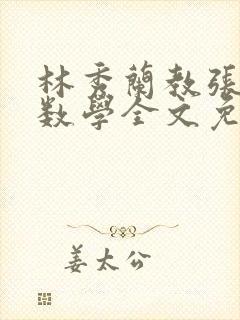 林秀蘭教張
数學全文免
姜太公